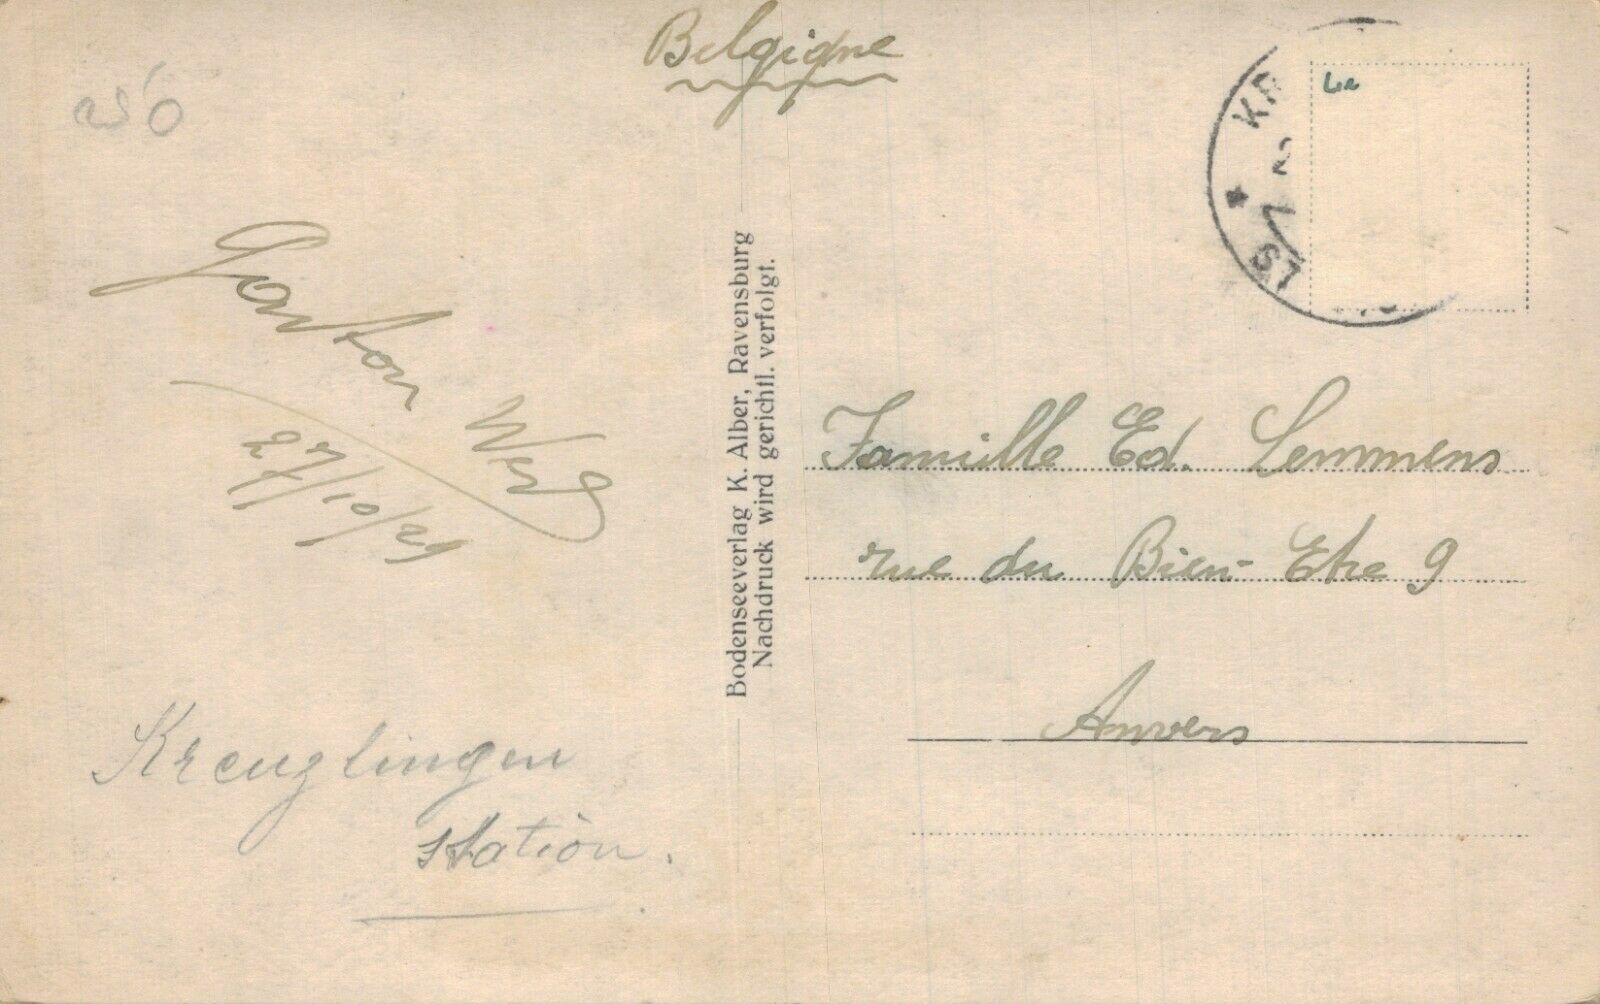 Belgique
250
Gaston
27/10/29
Kreuzlingen
station.
Bodenseeverlag K. Alber, Ravensburg
Nachdruck wird gerichtl. verfolgt.
KR
Famille Ed. Lemmens
rue du Bien-Etre 9
Anvers